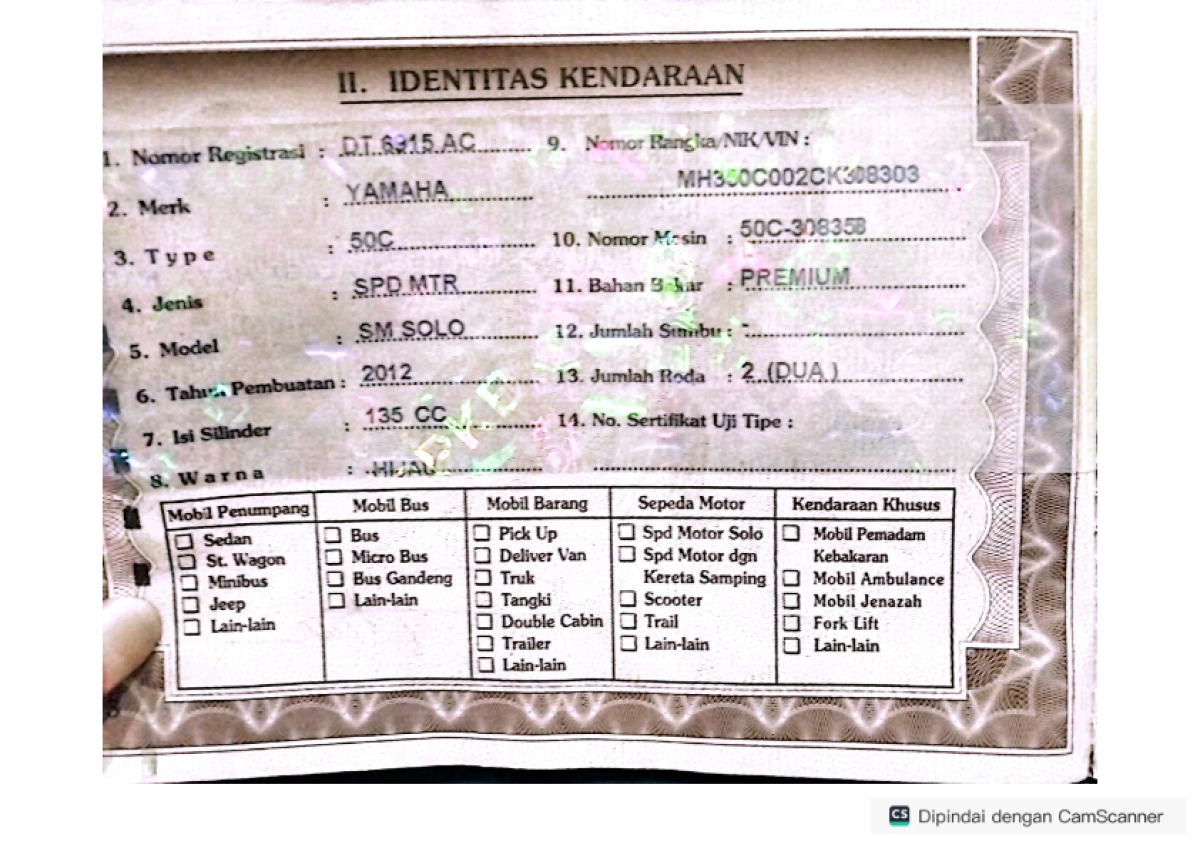 II. IDENTITAS KENDARAAN
1. Nomor Registrasi : DT 6915 AC
2. Merk : YAMAHA
3. Type : 50C
4. Jenis : SPD MTR
5. Model : SM SOLO
6. Tahun Pembuatan : 2012
7. Isi Silinder : 135 CC
8. Warna : HIJAU
9. Nomor Rangka/NIK/VIN :
MH350C002CK308303
10. Nomor Mesin : 50C-308358
11. Bahan Bakar : PREMIUM
12. Jumlah Sumbu : -
13. Jumlah Roda : 2 (DUA)
14. No. Sertifikat Uji Tipe :
BPKB
Mobil Penumpang
Sedan
St. Wagon
Minibus
Jeep
Lain-lain
Mobil Bus
Bus
Micro Bus
Bus Gandeng
Lain-lain
Mobil Barang
Pick Up
Deliver Van
Truk
Tangki
Double Cabin
Trailer
Lain-lain
Sepeda Motor
Spd Motor Solo
Spd Motor dgn
Kereta Samping
Scooter
Trail
Lain-lain
Kendaraan Khusus
Mobil Pemadam
Kebakaran
Mobil Ambulance
Mobil Jenazah
Fork Lift
Lain-lain
CS Dipindai dengan CamScanner